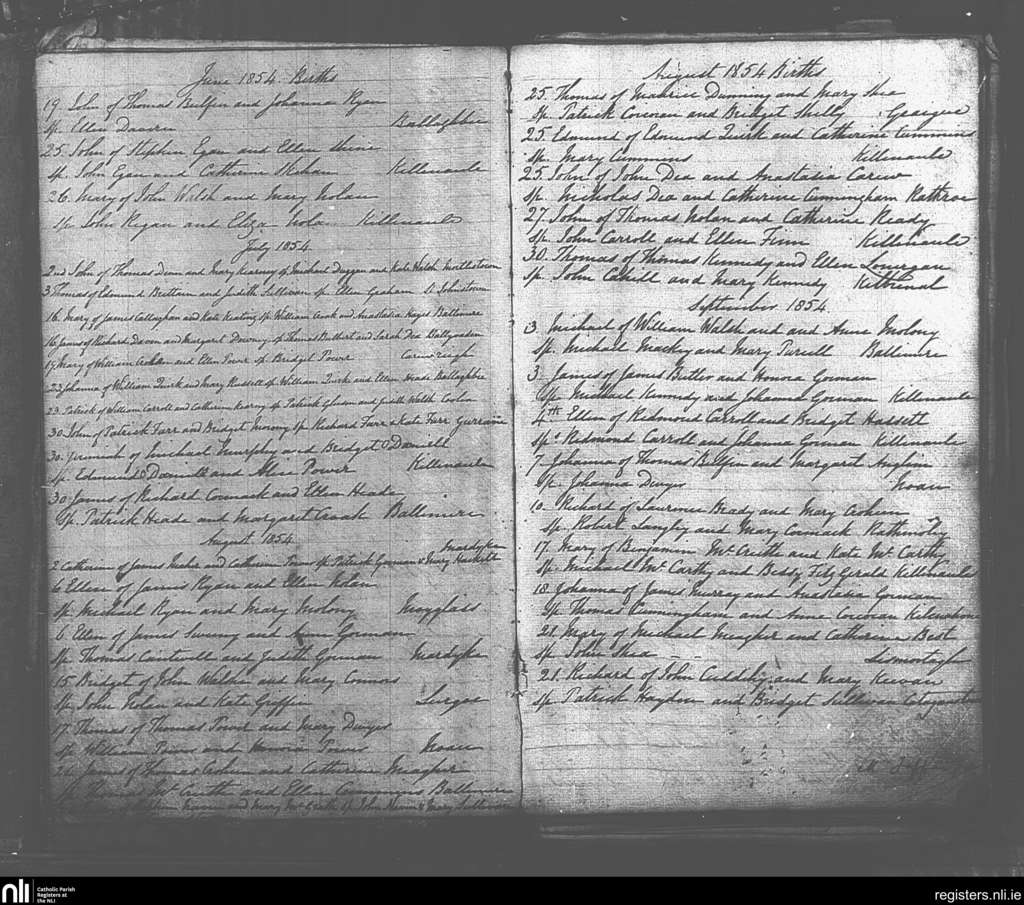 June 1854 Births
19 John of Thomas Bulfin and Johanna Ryan
Sp. Ellen Daurn Ballaghbee
25. John of Stephen Egan and Ellen
Sp. John Egan and Catherine Skehan Killenaule
26. Mary of John Walsh and Mary Nolan
Sp. John Regan and Eliza Nolan Killenaule
July 1854
2nd John of Thomas Dunn and Mary Kearney Sp. Michael Duggan and Kate Walsh Noelstown
3 Thomas of Edmund Brittain and Judith Sullivan Sp. Ellen Graham St Johnstown
16. Mary of James Callaghan and Kate Keating Sp. William Cook and Anastasia Hayes Ballinure
16 James of Richard and Margaret Downey Sp. Thomas and Sarah Dea
17 Mary of William and Ellen Power Sp. Bridget Power
23 Johanna of William Quirk and Mary Russell Sp. William Quirk and Ellen Heade Ballaghbee
23. Patrick of William Carroll and Catherine Kearney Sp. Patrick Gleeson and Judith Walsh
30. John of Patrick Farr and Bridget Sp. Richard Farr & Kate Farr Gurraine
30. Jeremiah of Michael Murphy and Bridget O'Daniell
Sp. Edmund O'Daniell and Power Killenaule
30 James of Richard Cormack and Ellen Heade
Sp. Patrick Heade and Margaret Cook Ballinure
August 1854
2 Catherine of James Meaher and Catherine Power Sp. Patrick Gorman & Mary Hackett Mardyke
6 Ellen of James Ryan and Ellen Nolan
Sp. Michael Ryan and Mary Molony Moyglass
6 Ellen of James Sweeny and Anne Gorman
Sp. Thomas Cantwell and Judith Gorman Mardyke
15 Bridget of John Welsh and Mary Connors
Sp. John Nolan and Kate Griffin Lurgoe
17 Thomas of Thomas Power and Mary Dwyer
Sp. William Power and Honora Power Noan
James of Thomas Cohun and Catherine Meagher
Sp. Thomas McCraith and Ellen Cummins Ballinure
and Mary McCraith Sp. John & Mary Sullivan
August 1854 Births
25. Thomas of Maurice Dunning and Mary Shea
Sp. Patrick Corcoran and Bridget Shelly Graigue
25. Edmund of Edmund Quirk and Catherine Cummins
Sp. Mary Cummins Killenaule
25. John of John Dea and Anastasia Carew
Sp. Nicholas Dea and Catherine Cunningham
27. John of Thomas Nolan and Catherine Ready
Sp. John Carroll and Ellen Finn Killenaule
30. Thomas of Thomas Kennedy and Ellen Lonergan
Sp. John Cahill and Mary Kennedy
September 1854
3. Michael of William Walsh and and Anne Molony
Sp. Michael Mackey and Mary Purcell Ballinure
3. James of James Butler and Honora Gorman
Sp. Michael Kennedy and Johanna Gorman Killenaule
4th Ellen of Redmond Carroll and Bridget Hassett
Sps. Redmond Carroll and Johanna Gorman Killenaule
7. Johanna of Thomas Bulfin and Margaret Anglim
Sp. Johanna Dwyer Noan
10. Richard of Laurence Beady and Mary Cohun
Sp. Robert Langley and Mary Cormack
17. Mary of Benjamin McCraith and Kate McCarthy
Sp. Michael McCarthy and Bessy FitzGerald Killenaule
18. Johanna of James Murray and Anastasia Gorman
Sp. Thomas Cunningham and Anne Corcoran
21. Mary of Michael Meagher and Catherine Best
Sp. John Shea Lismortagh
21. Richard of John Cuddihy and Mary Kirwan
Sp. Patrick Hayden and Bridget Sullivan
nli
Catholic Parish
Registers at
the NLI
registers.nli.ie